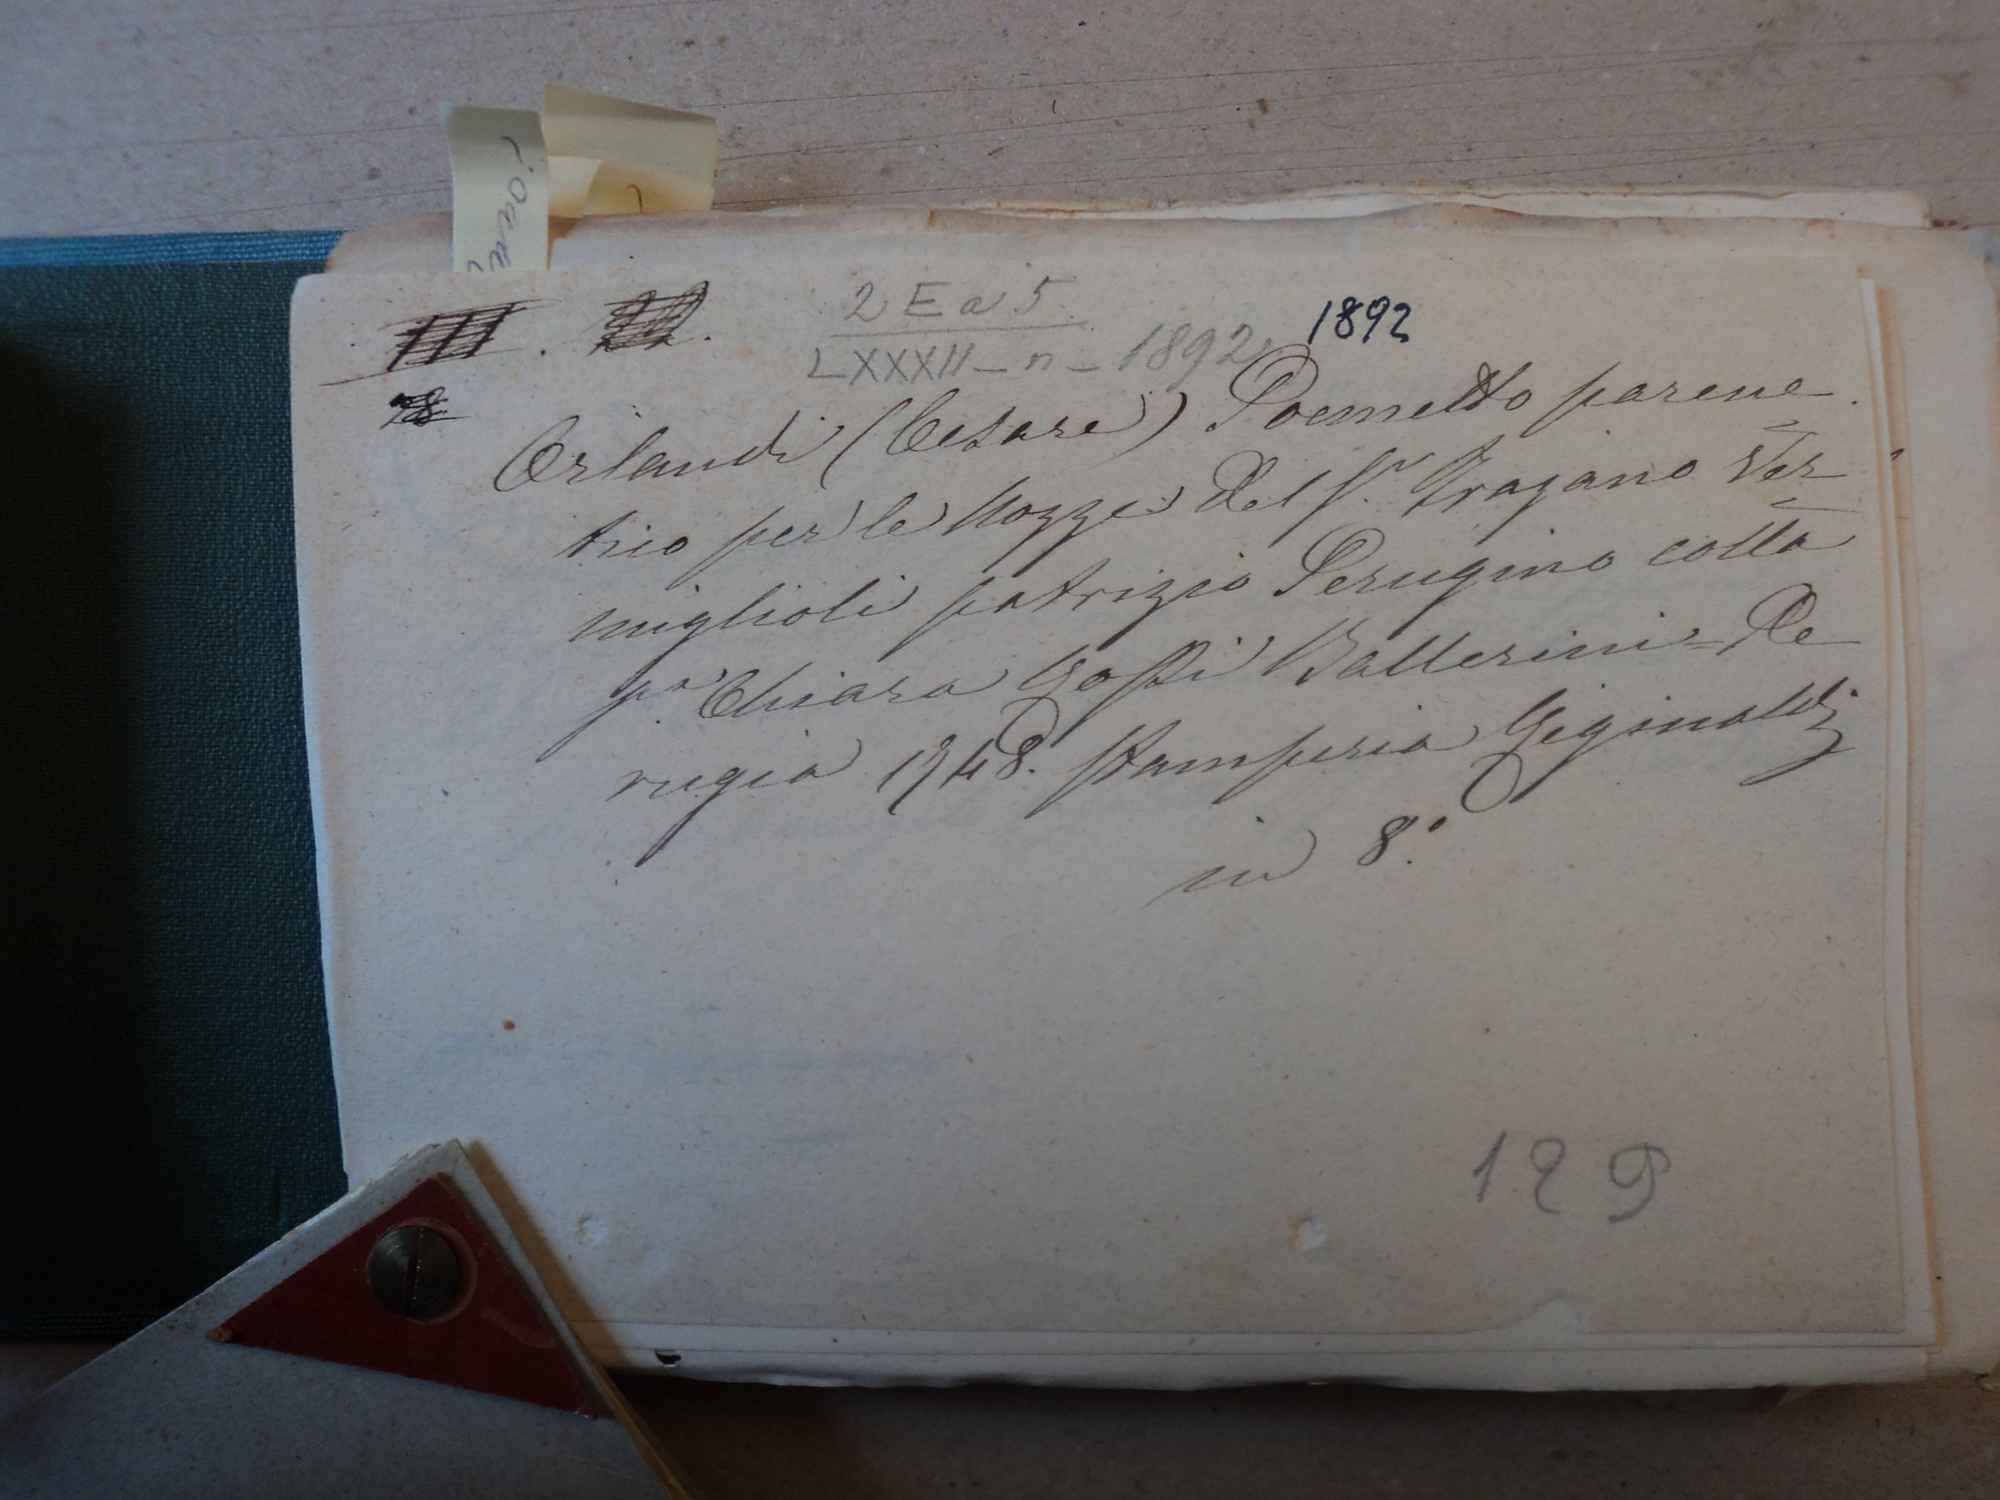 III
2 E a 5
LXXXII - n - 1892
1892
78
Orlandi (Cesare) Poemetto parene=
tico per le Nozze del Sr. Trajano Ver=
miglioli patrizio Perugino colla
Sra. Chiara Goffi Ballerini = Pe
rugia 1748. Stamperia Reginaldi
in 8.°
129